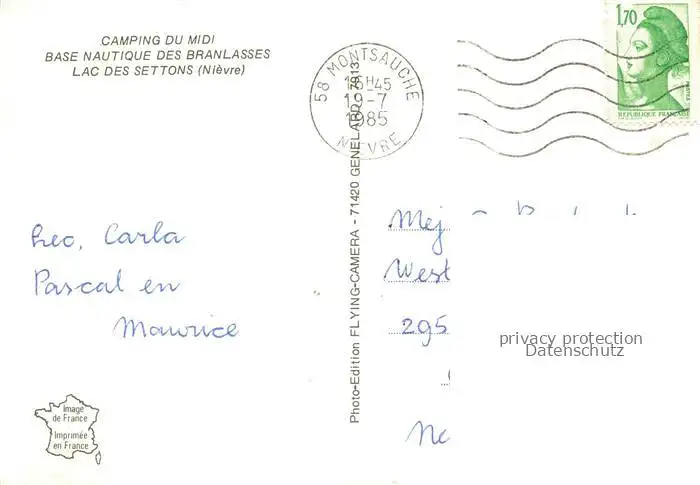 CAMPING DU MIDI
BASE NAUTIQUE DES BRANLASSES
LAC DES SETTONS (Nièvre)
58 MONTSAUCHE
H45
19-7
1985
NIEVRE
1,70
REPUBLIQUE FRANÇAISE
Photo-Edition FLYING-CAMERA - 71420 GENELARD - 7913
Leo, Carla
Pascal en
Maurice
Mej
West
295
privacy protection
Datenschutz
Image
de France
Imprimée
en France